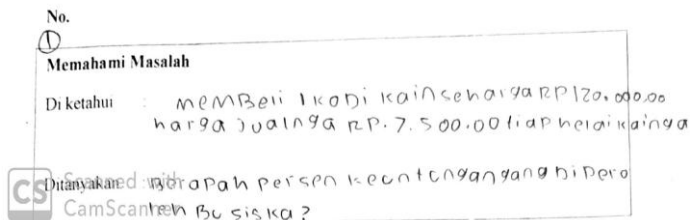 No.
1
Memahami Masalah
Di ketahui : memBeli 1 koDi kain seharga RP 120.000,00
harga jualnya RP. 7.500.00 tiap helai kainya
Ditanyakan : Berapah persen keuntungan yang DiPero
leh Bu siska?
CS Scanned with
CamScanner